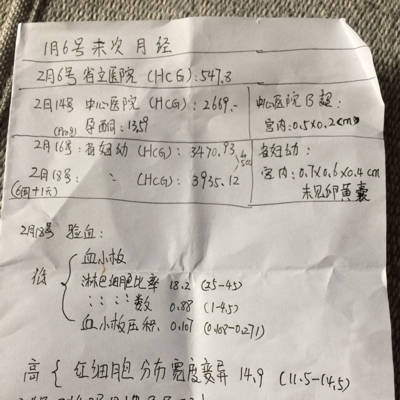 1月6号末次月经
2月6号 省立医院 (HCG): 547.8
2月14号 中心医院 (HCG): 2669.-
(Prog) 孕酮: 13.59
中心医院B超:
宫内:0.5x0.2cm
2月16号: 省妇幼 (HCG): 3470.93
2月18号: 〃 (HCG): 3935.12
(6周+1天)
省妇幼:
宫内:0.7x0.6x0.4cm
未见卵黄囊
2月18号 验血:
低 { 血小板
淋巴细胞比率 18.2 (25-45)
〃数 0.88 (1-4.5)
血小板压积. 0.167 (0.168-0.271)
高 { 红细胞分布宽度变异 14.9 (11.5-14.5)